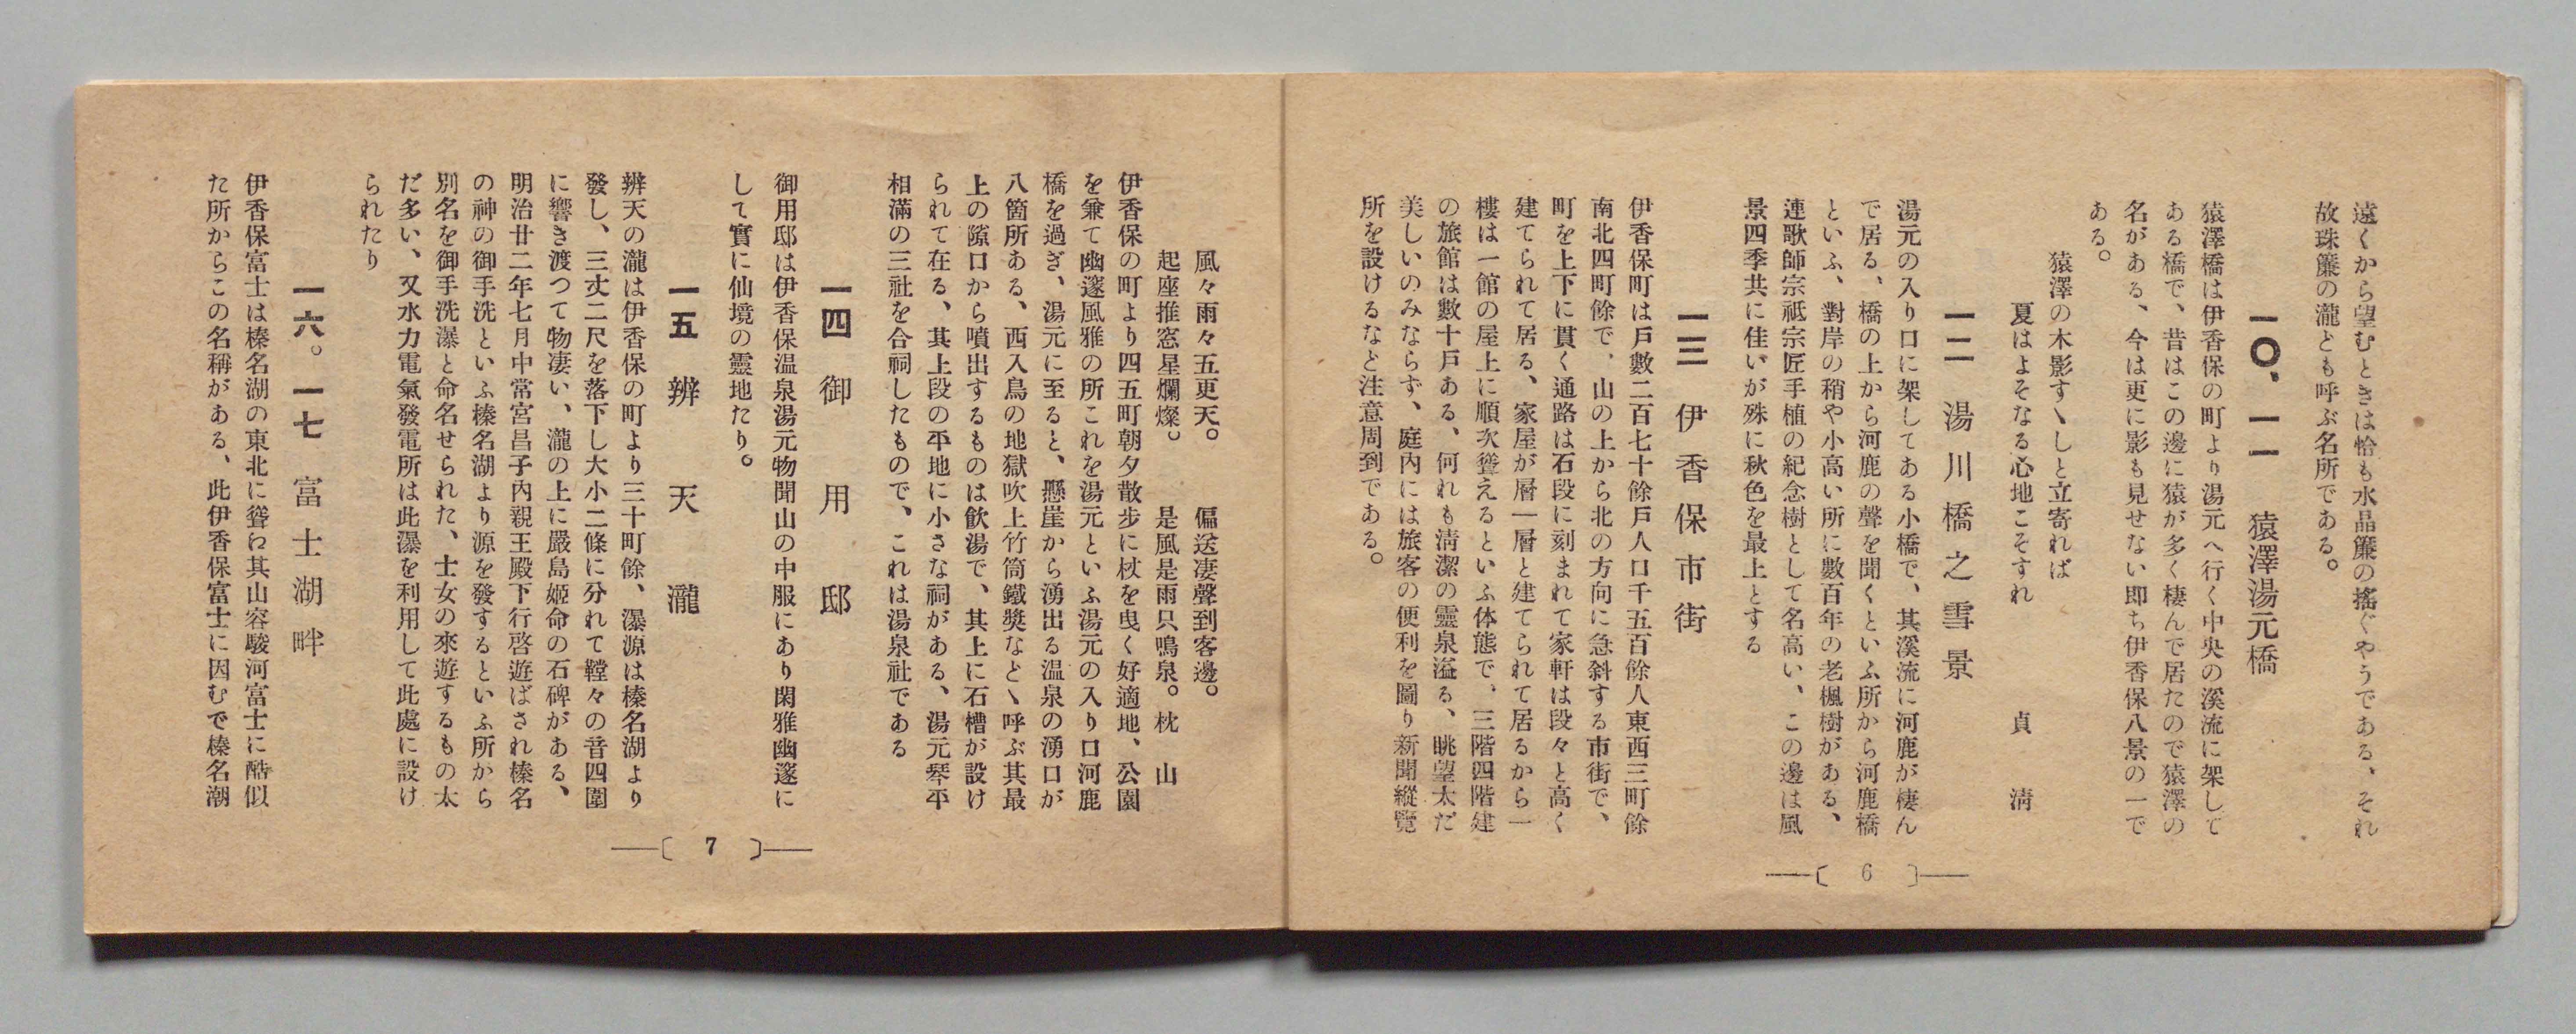 遠くから望むときは恰も水晶簾の搖ぐやうである、それ
故珠簾の瀧とも呼ぶ名所である。
一〇、一一　猿澤湯元橋
猿澤橋は伊香保の町より湯元へ行く中央の溪流に架して
ある橋で、昔はこの邊に猿が多く棲んで居たので猿澤の
名がある、今は更に影も見せない即ち伊香保八景の一で
ある。
猿澤の木影すゞしと立寄れば
夏はよそなる心地こそすれ　貞　淸
一二　湯川橋之雪景
湯元の入り口に架してある小橋で、其溪流に河鹿が棲ん
で居る、橋の上から河鹿の聲を聞くといふ所から河鹿橋
といふ、對岸の稍や小高い所に數百年の老楓樹がある、
連歌師宗祗宗匠手植の紀念樹として名高い、この邊は風
景四季共に佳いが殊に秋色を最上とする
一三　伊香保市街
伊香保町は戸數二百七十餘戸人口千五百餘人東西三町餘
南北四町餘で、山の上から北の方向に急斜する市街で、
町を上下に貫く通路は石段に刻まれて家軒は段々と高く
建てられて居る、家屋が層一層と建てられて居るから一
樓は一館の屋上に順次聳えるといふ体態で、三階四階建
の旅館は數十戸ある、何れも淸潔の靈泉溢る、眺望太だ
美しいのみならず、庭内には旅客の便利を圖り新聞縱覽
所を設けるなど注意周到である。
6
風々雨々五更天。　偏送凄聲到客邊。
起座推窓星爛燦。　是風是雨只鳴泉。枕　山
伊香保の町より四五町朝夕散步に杖を曳く好適地、公園
を兼て幽邃風雅の所これを湯元といふ湯元の入り口河鹿
橋を過ぎ、湯元に至ると、懸崖から湧出る温泉の湧口が
八箇所ある、西入鳥の地獄吹上竹筒鐵獎などゝ呼ぶ其最
上の隙口から噴出するものは飮湯で、其上に石槽が設け
られて在る、其上段の平地に小さな祠がある、湯元琴平
相滿の三社を合祠したもので、これは湯泉社である
一四　御用邸
御用邸は伊香保温泉湯元物聞山の中服にあり閑雅幽邃に
して實に仙境の靈地たり。
一五　辨天瀧
辨天の瀧は伊香保の町より三十町餘、瀑源は榛名湖より
發し、三丈二尺を落下し大小二條に分れて鞺々の音四圍
に響き渡つて物凄い、瀧の上に嚴島姫命の石碑がある、
明治廿二年七月中常宮昌子内親王殿下行啓遊ばされ榛名
の神の御手洗といふ榛名湖より源を發するといふ所から
別名を御手洗瀑と命名せられた、士女の來遊するもの太
だ多い、又水力電氣發電所は此瀑を利用して此處に設け
られたり
一六。一七　富士湖畔
伊香保富士は榛名湖の東北に聳ね其山容駿河富士に酷似
た所からこの名稱がある、此伊香保富士に因むで榛名潮
7